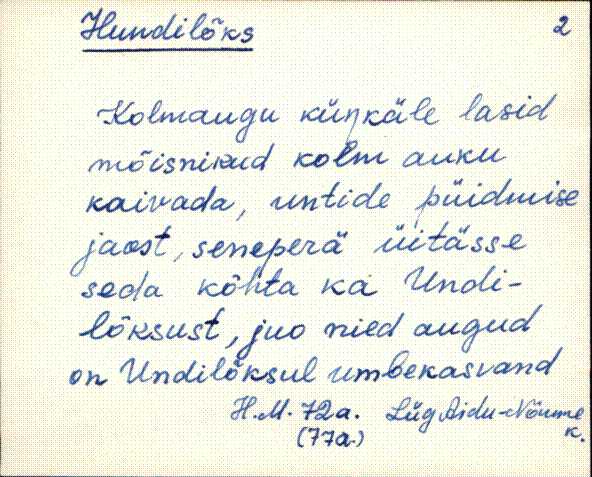 Hundilõks 2
Kolmaugu küŋkäle lasid
mõisnikud kolm auku
kaivada, untide püidmise
jaost, seneperä üitässe
seda kõhta ka Undi-
lõksust, juo nied augud
on Undilõksul umbekasvand
H.M. 72a. Lüg Aidu-Nõmme
(77a.) k.